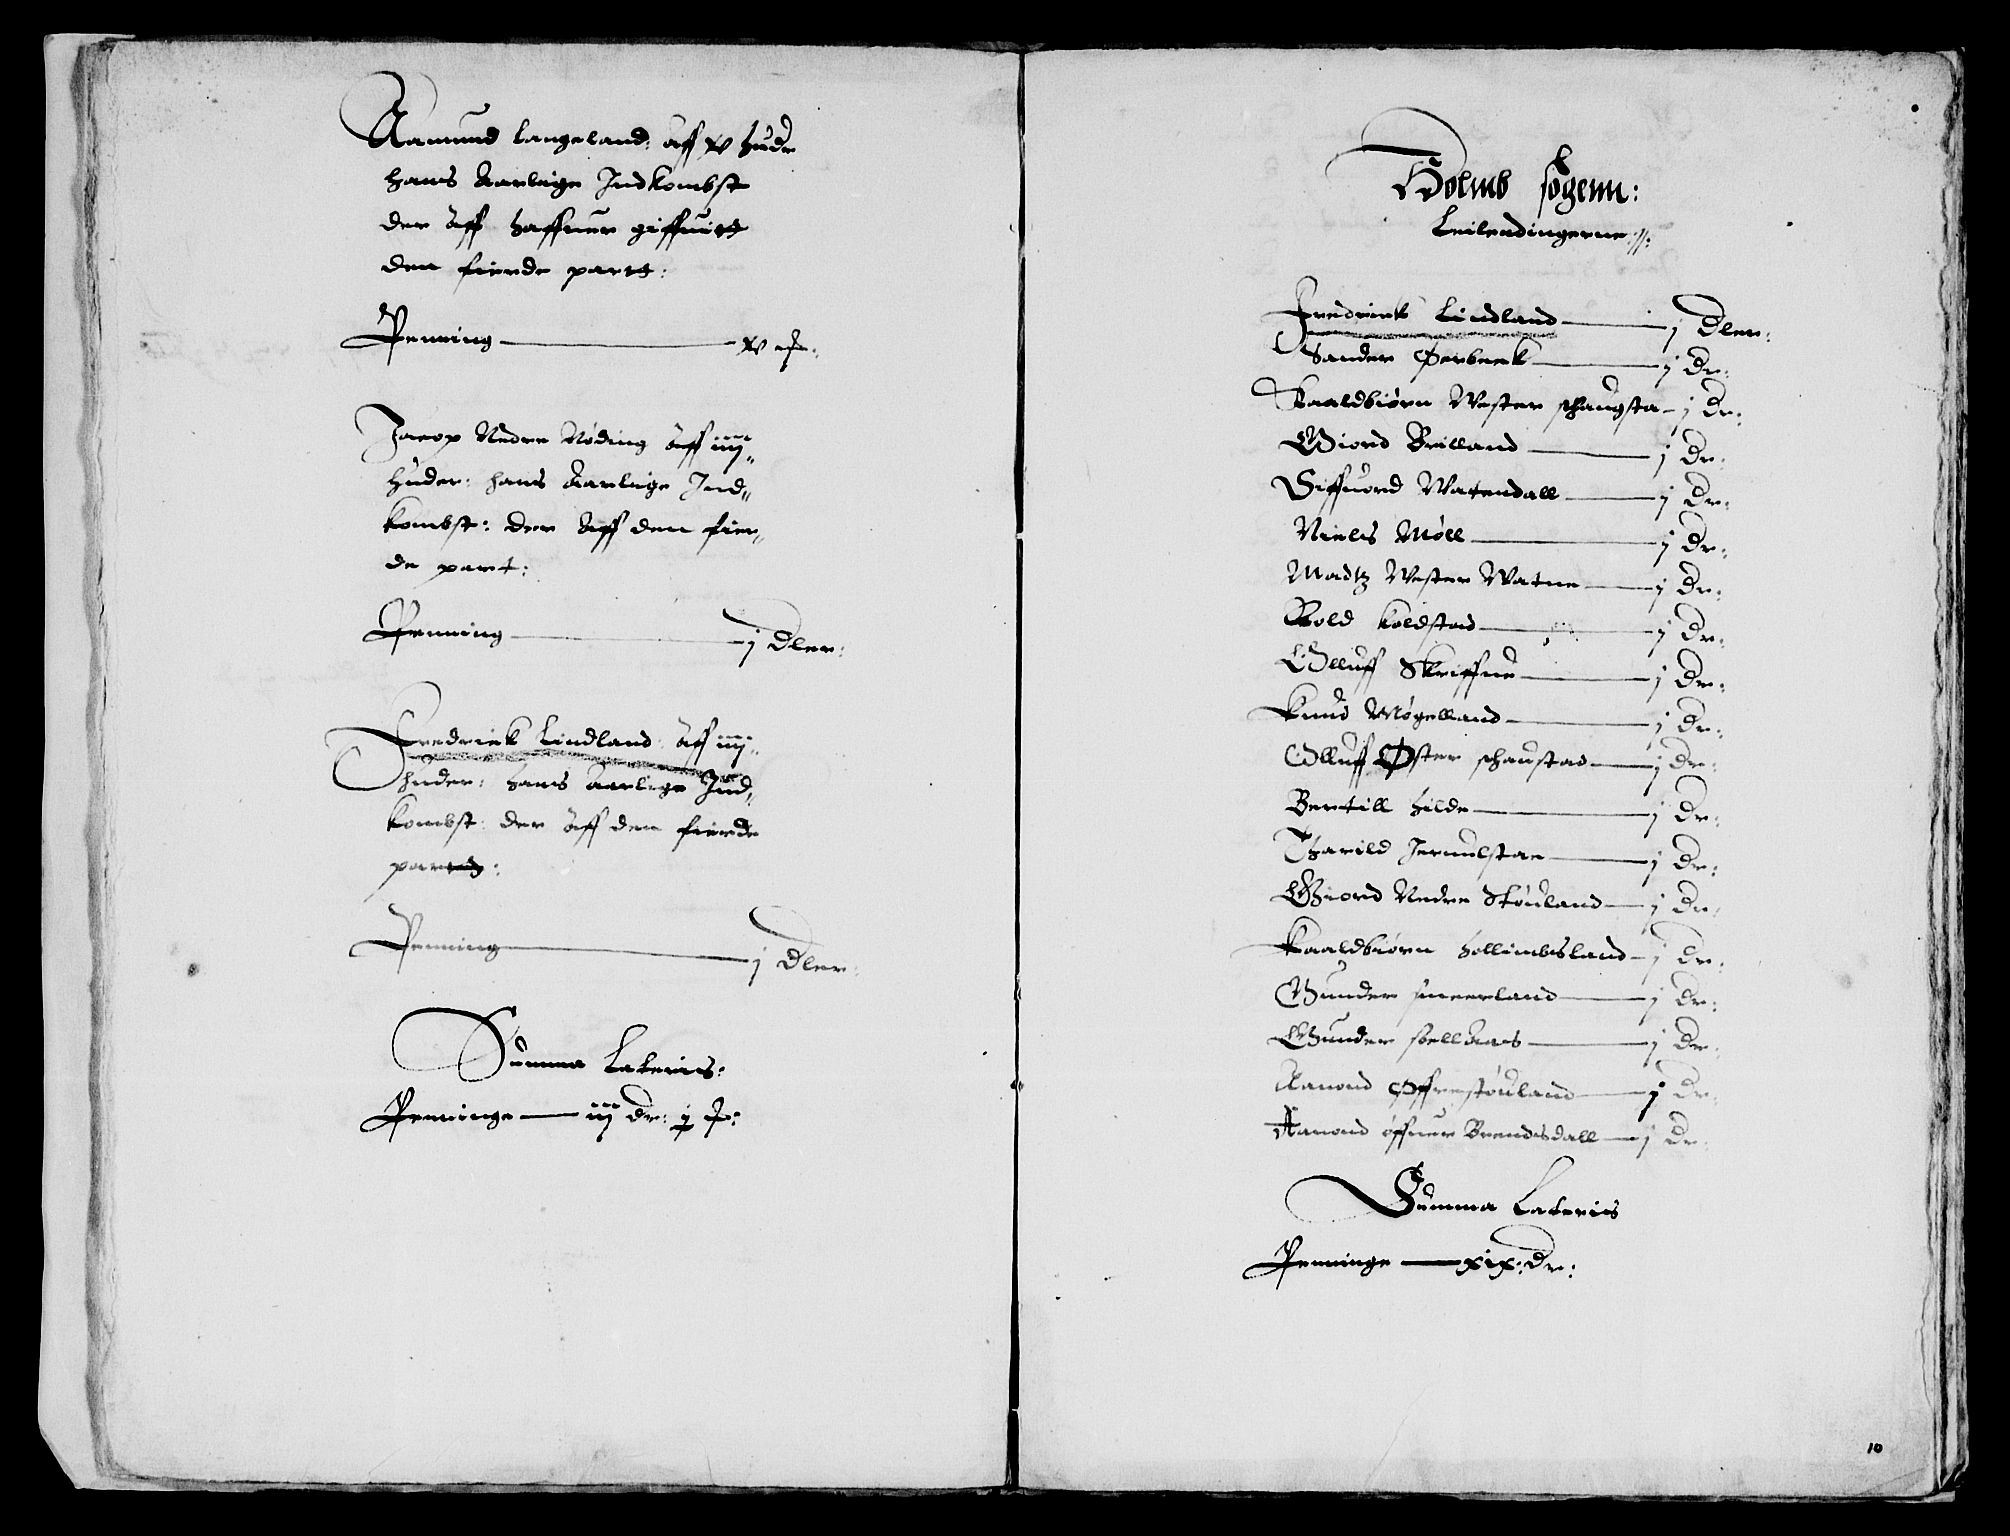 Aamund Langeland: Aff xv hude
hans Aarlige Indkombst
der Aff haffuer giffuitt
den fierde partt:
Penning xv
Jacop Nedre Nøding Aff iiij
huder: hans Aarlige Ind„
kombst: der Aff den fier„
de part:
Penning j Dler:
Fredrick Lindland: Aff iiij
huder: hans Aarlige Ind„
kombst: der Aff den fierde
partt:
Penning j Dler:
Summa Lateris:
Peninge iij dr:
Holmb sogenn:
Leilendingerne:
Fredrick Lindland j Dler:
Sander Øerbeck j Dr:
Kaaldbiørn Wester schaugsta j Dr:
Giord Brilland j Dr:
Siffuord Watendall j Dr:
Niels Møll j Dr:
Madtz Wester Watne j Dr:
Rold Koldstad j Dr:
Olluff Skriffue j Dr:
Knud Møgelland j Dr:
Olluff Øster schaustad j Dr:
Bertill Hilde j Dr:
Tharild Jermelstae j Dr:
Giord Nedre Støuland j Dr:
Kaaldbiørn Hollimbsland j Dr:
Gunder Sneerland j Dr:
Gunder Soellaas j Dr:
Aanond Øffrestøuland j Dr:
Aanond Øffuer Brendsdall j Dr:
Summa Lateris
Penninge xix: Dr:
10